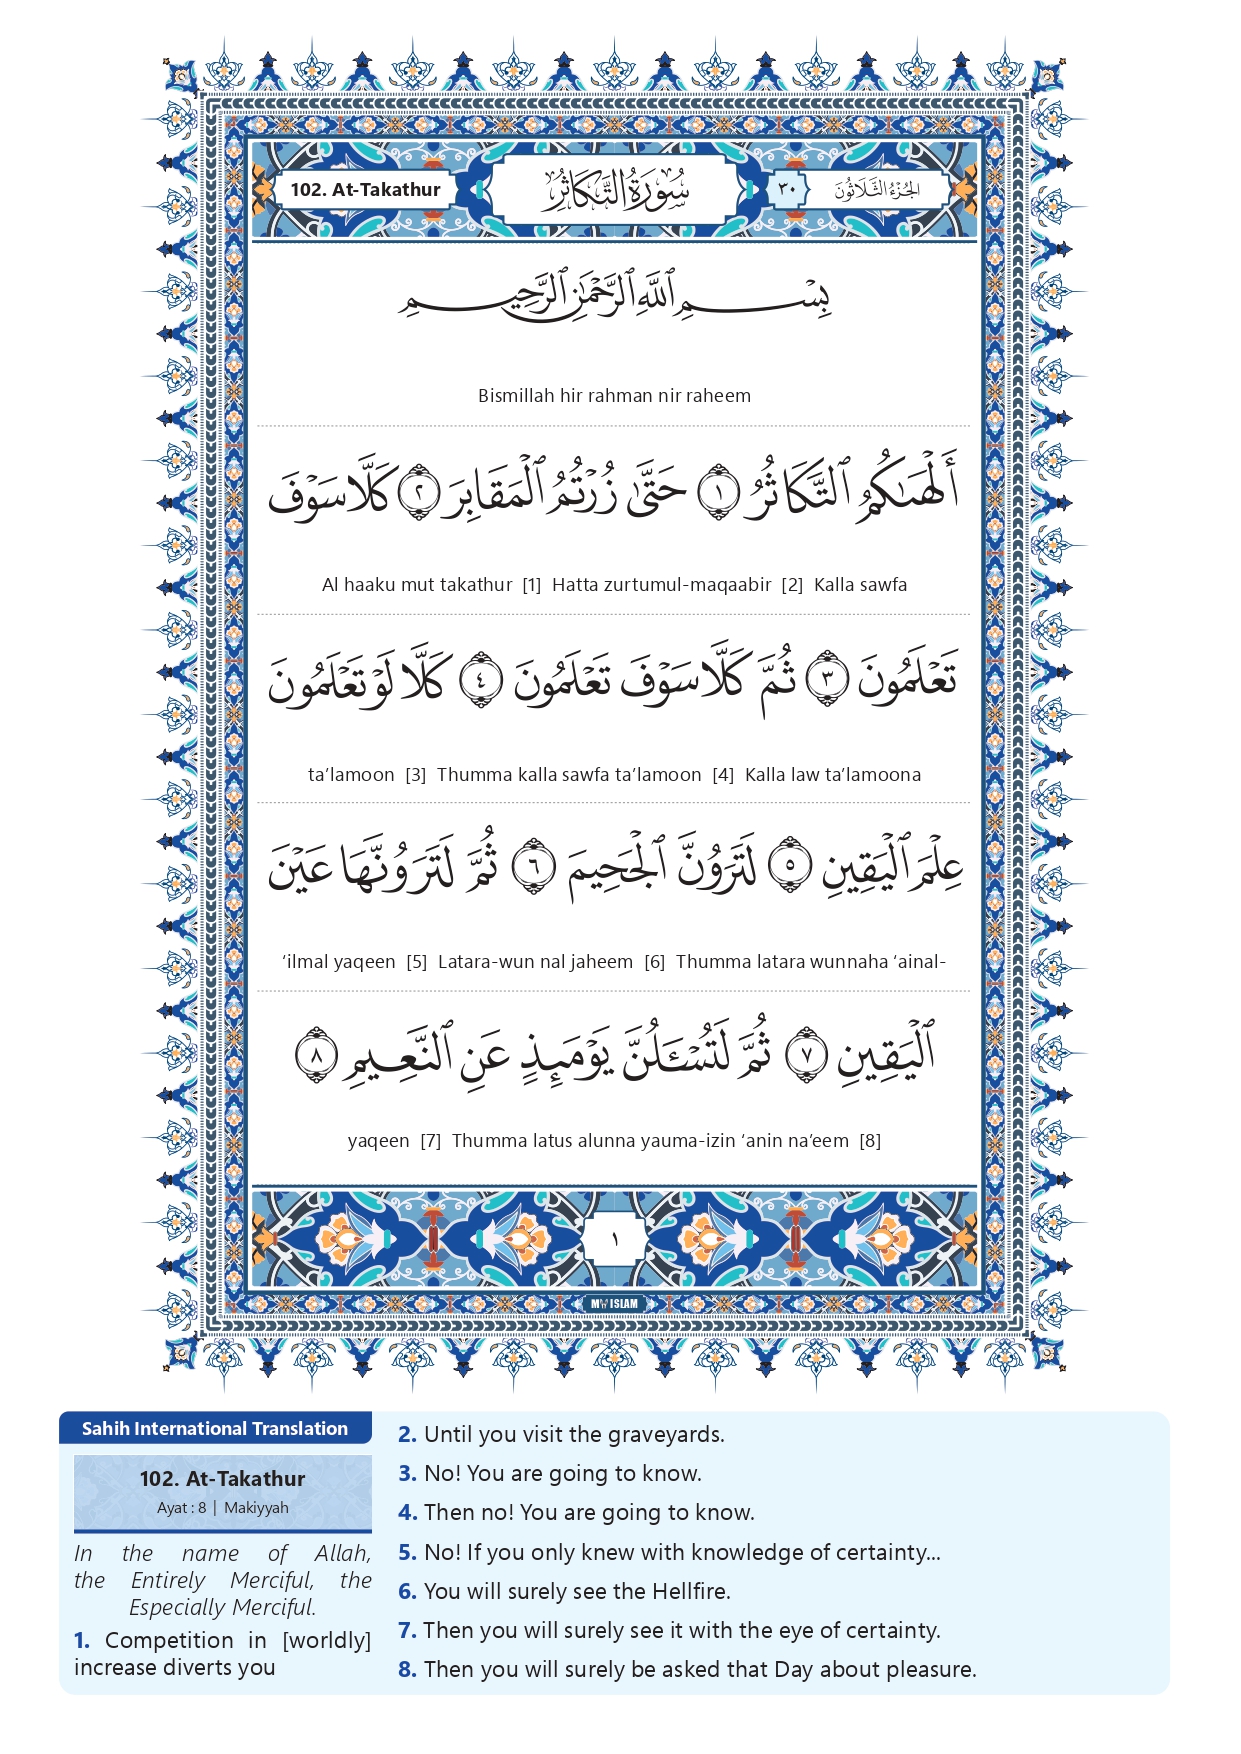 102. At-Takathur
سُورَةُ التَّكَاثُرِ
٣٠
الجُزْءُ الثَّلَاثُونَ
بِسْمِ ٱللَّهِ ٱلرَّحْمَٰنِ ٱلرَّحِيمِ
Bismillah hir rahman nir raheem
أَلْهَىٰكُمُ ٱلتَّكَاثُرُ ١ حَتَّىٰ زُرْتُمُ ٱلْمَقَابِرَ ٢ كَلَّا سَوْفَ
Al haaku mut takathur [1] Hatta zurtumul-maqaabir [2] Kalla sawfa
تَعْلَمُونَ ٣ ثُمَّ كَلَّا سَوْفَ تَعْلَمُونَ ٤ كَلَّا لَوْ تَعْلَمُونَ
ta’lamoon [3] Thumma kalla sawfa ta’lamoon [4] Kalla law ta’lamoona
عِلْمَ ٱلْيَقِينِ ٥ لَتَرَوُنَّ ٱلْجَحِيمَ ٦ ثُمَّ لَتَرَوُنَّهَا عَيْنَ
‘ilmal yaqeen [5] Latara-wun nal jaheem [6] Thumma latara wunnaha ‘ainal-
ٱلْيَقِينِ ٧ ثُمَّ لَتُسْـَٔلُنَّ يَوْمَئِذٍ عَنِ ٱلنَّعِيمِ ٨
yaqeen [7] Thumma latus alunna yauma-izin ’anin na’eem [8]
١
MY ISLAM
Sahih International Translation
102. At-Takathur
Ayat : 8 | Makiyyah
In the name of Allah,
the Entirely Merciful, the
Especially Merciful.
1. Competition in [worldly]
increase diverts you
2. Until you visit the graveyards.
3. No! You are going to know.
4. Then no! You are going to know.
5. No! If you only knew with knowledge of certainty...
6. You will surely see the Hellfire.
7. Then you will surely see it with the eye of certainty.
8. Then you will surely be asked that Day about pleasure.